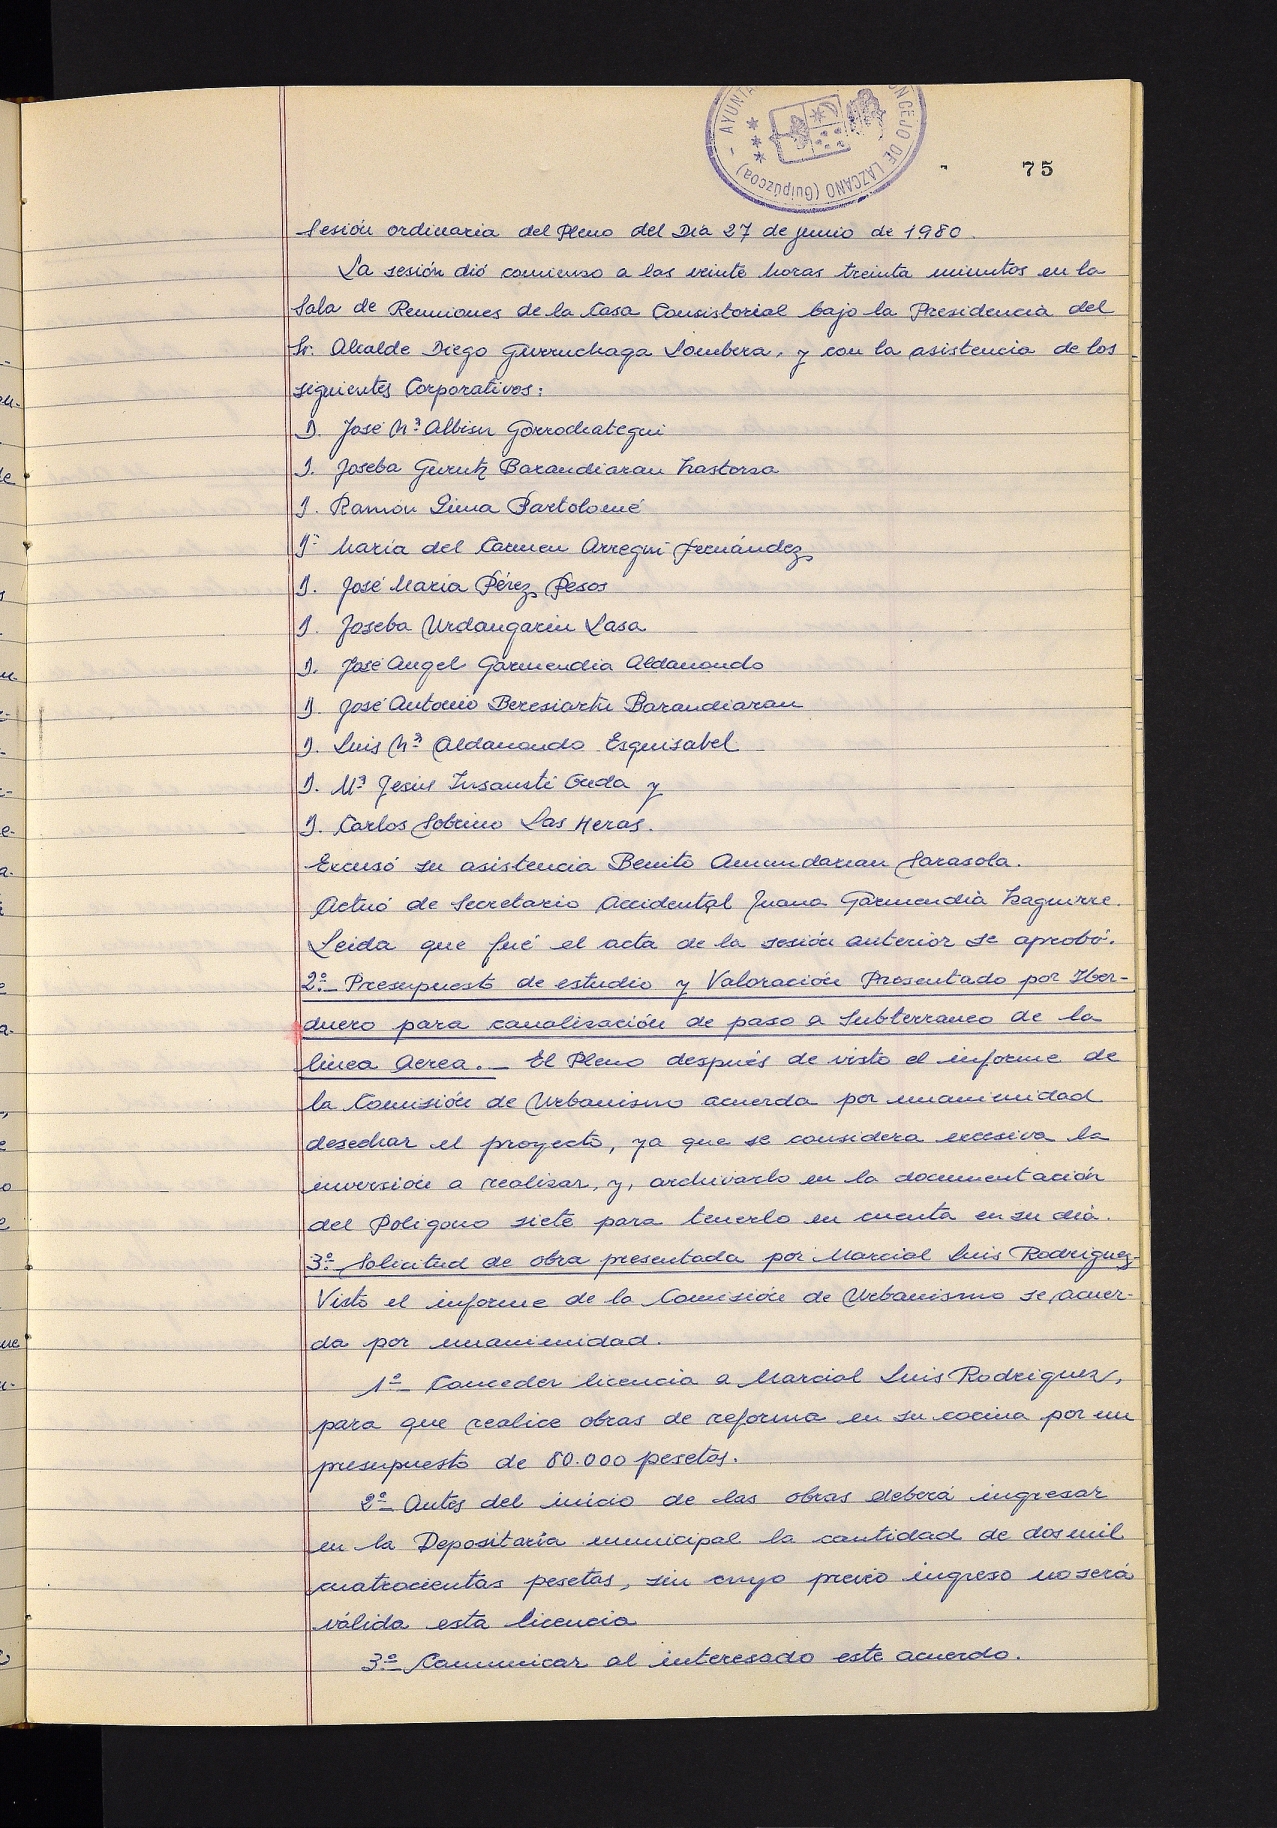 AYUNTA
ONCEJO DE LAZCANO (Guipúzcoa) -
75
Sesión ordinaria del Pleno del Día 27 de junio de 1980.
La sesión dió comienzo a las veinte horas treinta minutos en la
Sala de Reuniones de la Casa Consistorial bajo la Presidencia del
Sr. Alcalde Diego Gurruchaga Lombera, y con la asistencia de los
siguientes Corporativos:
D. José Mª Albisu Gorrochategui
D. Joseba Gurutz Barandiaran
D. Ramón Lima Bartolomé
Dª María del Carmen Arregui Fernández
D. José Maria Pérez Pesos
D. Joseba Urdangarin Lasa
D. José Angel Garmendia Aldanondo
D. José Antonio Beresiartu Barandiaran
D. Luis Mª Aldanondo Esquisabel
D. Mª Jesus Insausti y
D. Carlos Sobrino Las Heras.
Excusó su asistencia Benito Amundarian Sarasola.
Actuó de Secretario Accidental Juana Garmendia Izaguirre.
Leida que fué el acta de la sesión anterior se aprobó.
2º- Presupuesto de estudio y Valoración Presentado por Iber-
duero para canalización de paso a Subterraneo de la
linea Aerea. - El Pleno después de visto el informe de
la Comisión de Urbanismo acuerda por unanimidad
desechar el proyecto, ya que se considera excesiva la
inversión a realizar, y, archivarlo en la documentación
del Poligono siete para tenerlo en cuenta en su dia.
3º- Solicitud de obra presentada por Marcial Luis Rodriguez-
Visto el informe de la Comisión de Urbanismo se acuer-
da por unanimidad.
1º- Conceder licencia a Marcial Luis Rodriguez,
para que realice obras de reforma en su cocina por un
presupuesto de 80.000 pesetas.
2º- Antes del inicio de las obras deberá ingresar
en la Depositaría municipal la cantidad de dos mil
cuatrocientas pesetas, sin cuyo previo ingreso no será
válida esta licencia
3º- Comunicar al interesado este acuerdo.